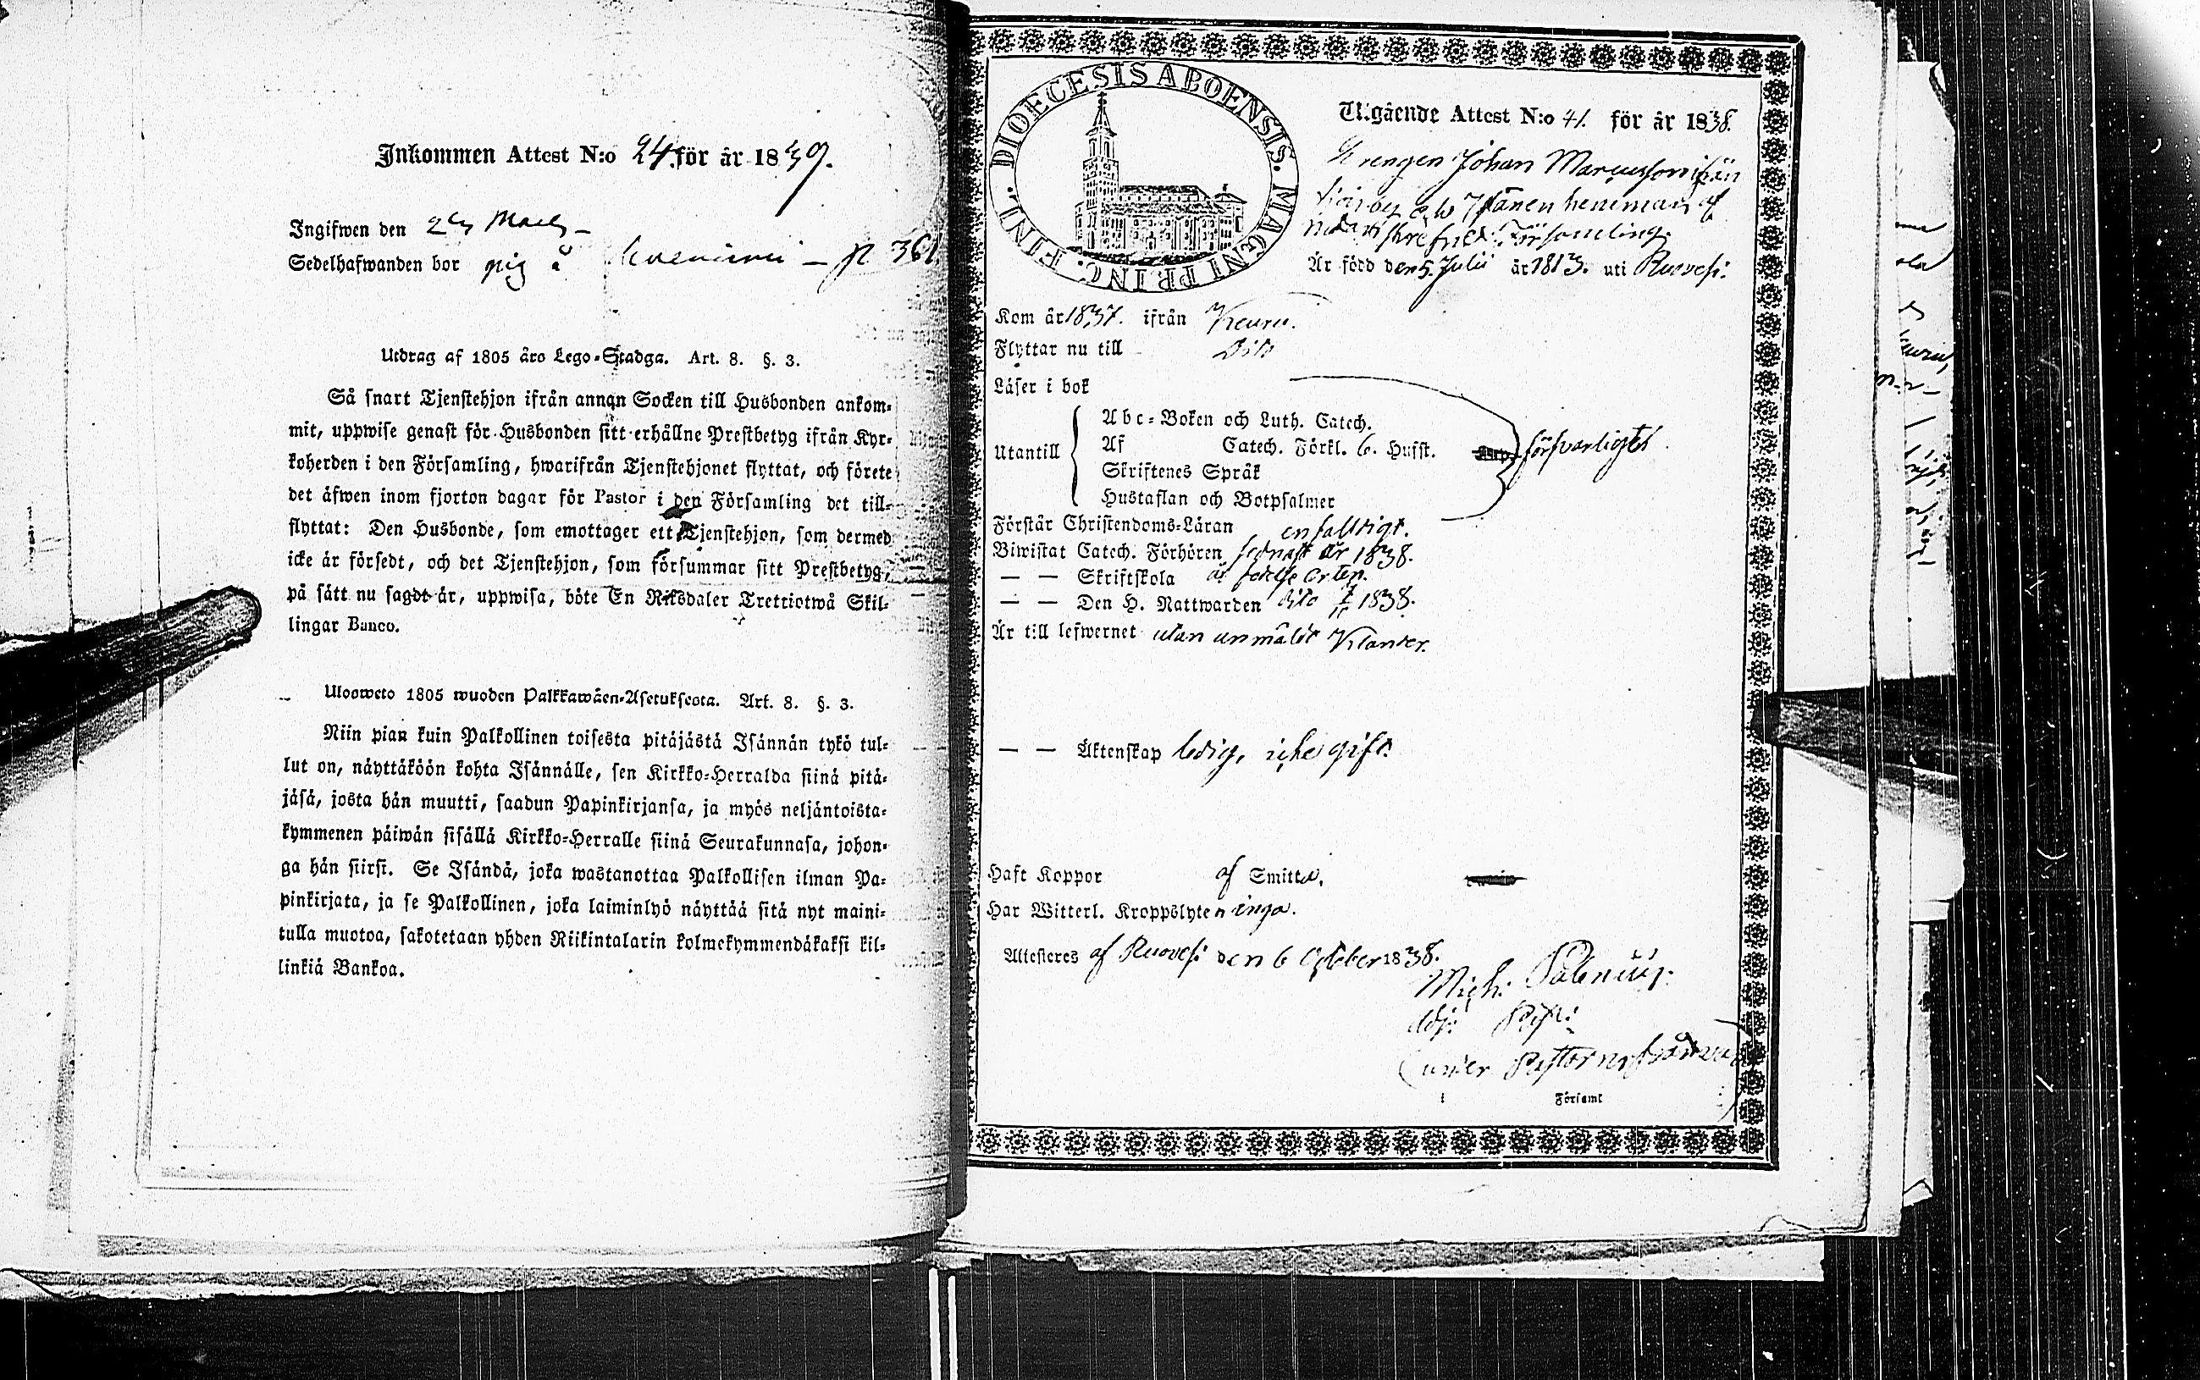 Inkommen Attest N:o 24 för år 1839.
Ingifwen den 2dj
Sedelhafwanden bor pig å p 361
Utdrag af 1805 års Lego-Stadga. Art. 8. §. 3.
Så snart Tjenstehjon ifrån annan Socken till Husbonden ankom-
mit, uppwise genast för Husbonden sitt erhållne Prestbetyg ifrån Kyr-
koherden i den Församling, hwarifrån Tjenstehjonet flyttat, och förete
det äfwen inom fjorton dagar för Pastor i den Församling det till-
flyttat: Den Husbonde, som emottager ett Tjenstehjon, som dermed
icke är försedt, och det Tjenstehjon, som försummar sitt Prestbetyg,
på sätt nu sagdt är, uppwisa, böte En Riksdaler Trettiotwå Skil-
lingar Banco.
Ulosweto 1805 wuoden Palkkawäen-Asetuksesta. Art. 8. §. 3.
Niin pian kuin Palkollinen toisesta pitäjästä Isännän tykö tul-
lut on, näyttäköön kohta Isännälle, sen Kirkko-Herralda siinä pitä-
jäsä, josta hän muutti, saadun Papinkirjansa, ja myös neljäntoista-
kymmenen päiwän sisällä Kirkko-Herralle siinä Seurakunnasa, johon-
ga hän siirsi. Se Isändä, joka wastanottaa Palkollisen ilman Pa-
pinkirjata, ja se Palkollinen, joka laiminlyö näyttää sitä nyt maini-
tulla muotoa, sakotetaan yhden Riikintalarin kolmekymmendäkaksi kil-
linkiä Bankoa.
DIOECESIS ABOENSIS. MAGNI PRINC. FINL.
Utgående Attest N:o 41. för år 1838.
Drengen Johan Marcusson ifrån
af
Församling.
Är född den 5. Julii år 1813. uti Ruovesi.
Kom år 1837. ifrån Keuru.
Flyttar nu till Dito
Läser i bok
Utantill
Abc-Boken och Luth. Catech.
Af Catech. Förkl. 6. Hufst. försvarligtst
Skriftenes Språk
Hustaflan och Botpsalmer
Förstår Christendoms-Läran enfalldigt.
Biwistat Catech. Förhören sednast år 1838.
— — Skriftskola å födelse orten.
— — Den H. Nattwarden dito 1838.
Är till lefwernet utan anmäldt Klander.
— — Äktenskap ledig, icke gift.
Haft Koppor af Smitta.
Har Witterl. Kroppslyten inga.
Attesteres af Ruovesi den 6 October 1838.
Mich: Palenius.
Adj:
(under Pastors frånvaro)
Församl